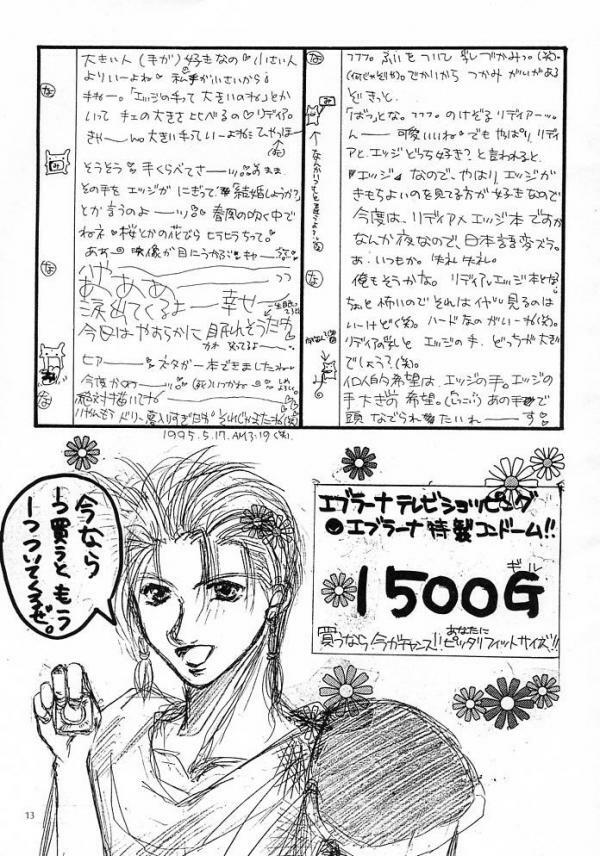 フフフ。ふいをついて乳しづかみっ。(笑)。
(何じゃそりゃ)。でかいからつかみがいがある
ぞきっと。
「ばっ」とな。フフフ。のけぞるリディアーッ。
ん── 可愛いいね でもやっぱり、リディ
アと、エッジとどっち好き？と言われると、
『エッジ』なので、やはりエッジが
きもちよいのを見てる方が好きなので
今度は、リディア×エッジ本ですか
なんか夜なので、日本語変ズラ。
あ、いつもか。失礼失礼。
俺もそうかな。リディア×エッジ本とな
ちょと怖いのでそれは 見るのは
いーけど(笑)。ハードなのがいーな(笑)。
リディアの乳と エッジの手、どっちが大き
でしょう？(笑)。
個人的希望は、エッジの手。エッジの
手大き 希望。 あの手で
頭なでられたいわ──す
大きい人(手が)好きなの 小さい人
よりいーよね 私手が小さいから
ねー。「エッジの手って大きいのね」とか
いって手の大きさ比べるの リディア。
きゃー 大きい手っていーよねえ ひゃっほー
(死)
そうそう 手くらべてさ──ッ。 そのまま
その手をエッジがにぎって「結婚しようか？」
とか言うのよ──ッ 春風の吹く中で
ねえ 桜とかの花びらヒラヒラちって。
あぁ 映像が目にうかぶ
ハヤ
あぁああ
涙出てくるよー 幸せ──
今日はやすらかに眠れそうだわ
ヒアー──ネタが一本できましたね
今度かめー──。(死)いつかね
絶対描いてね
1995.5.17.AM3:19(笑).
今なら
一つ買うともう
一つついてくるぜ。
エブラーナテレビショッピング
●エブラーナ特製コンドーム!!
ギル
1500G
あなたに
買うなら、今がチャンス!!ピッタリフィットサイズ!!
13